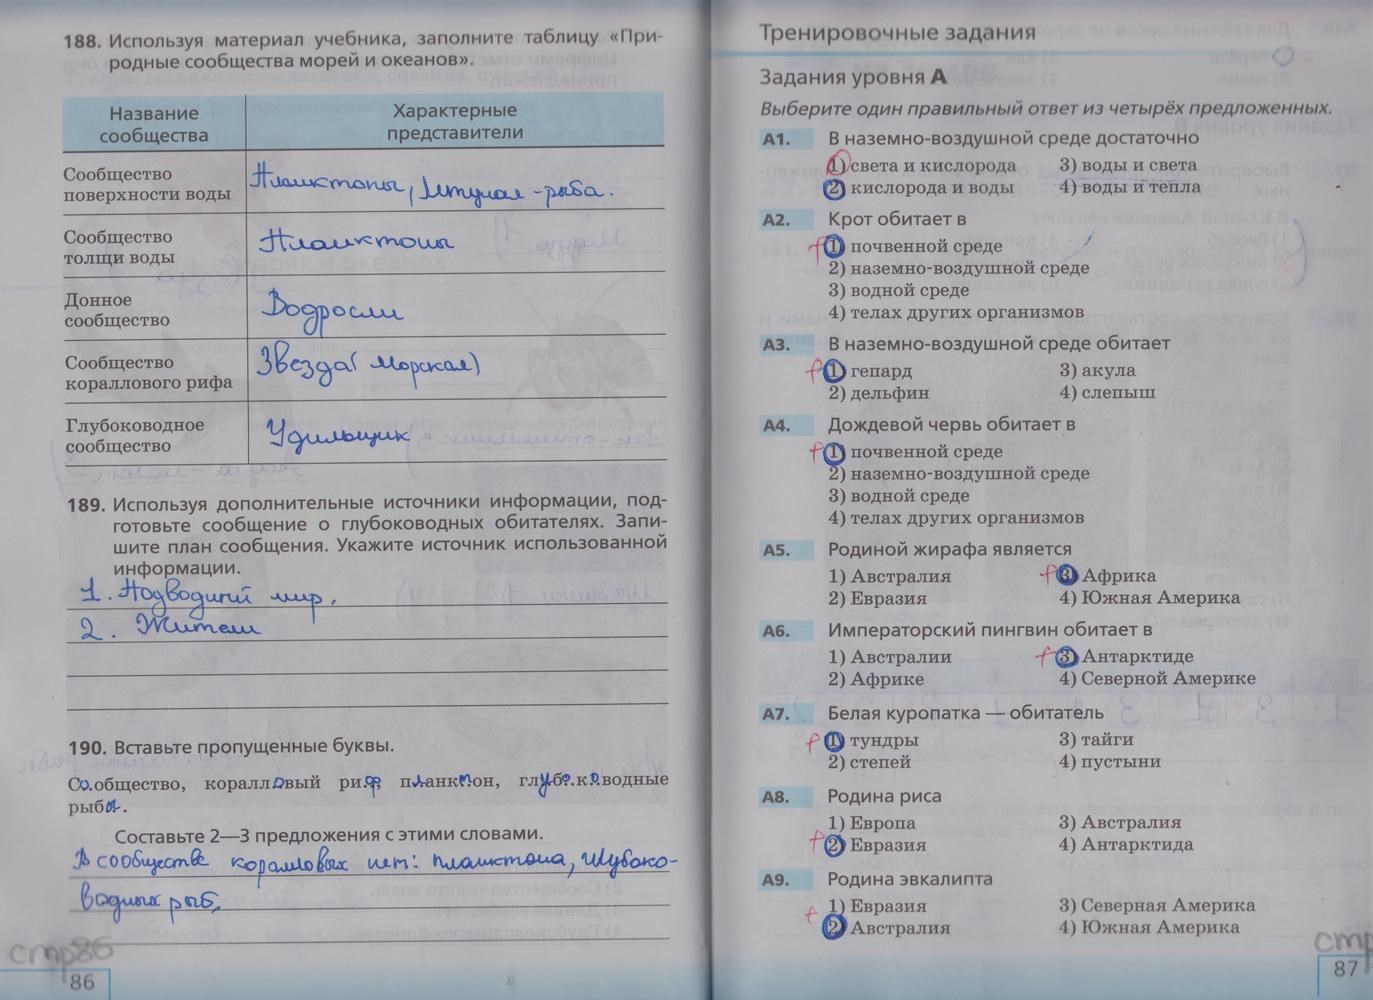 188. Используя материал учебника, заполните таблицу «При-
родные сообщества морей и океанов».
Название
сообщества
Характерные
представители
Сообщество
поверхности воды
Планктоны, Летучая-рыба.
Сообщество
толщи воды
Планктоны
Донное
сообщество
Водросли
Сообщество
кораллового рифа
Звезда( Морская)
Глубоководное
сообщество
Удильщик
189. Используя дополнительные источники информации, под-
готовьте сообщение о глубоководных обитателях. Запи-
шите план сообщения. Укажите источник использованной
информации.
1. Подводный мир.
2. Жители
190. Вставьте пропущенные буквы.
Сообщество, коралловый риф, планктон, глубоководные
рыбы.
Составьте 2—3 предложения с этими словами.
В сообществе коралловых нет: планктона, глубоко-
водных рыб.
стр86
86
Тренировочные задания
Задания уровня А
Выберите один правильный ответ из четырёх предложенных.
А1. В наземно-воздушной среде достаточно
1) света и кислорода 3) воды и света
2) кислорода и воды 4) воды и тепла
А2. Крот обитает в
1) почвенной среде
2) наземно-воздушной среде
3) водной среде
4) телах других организмов
А3. В наземно-воздушной среде обитает
1) гепард 3) акула
2) дельфин 4) слепыш
А4. Дождевой червь обитает в
1) почвенной среде
2) наземно-воздушной среде
3) водной среде
4) телах других организмов
А5. Родиной жирафа является
1) Австралия 3) Африка
2) Евразия 4) Южная Америка
А6. Императорский пингвин обитает в
1) Австралии 3) Антарктиде
2) Африке 4) Северной Америке
А7. Белая куропатка — обитатель
1) тундры 3) тайги
2) степей 4) пустыни
А8. Родина риса
1) Европа 3) Австралия
2) Евразия 4) Антарктида
А9. Родина эвкалипта
1) Евразия 3) Северная Америка
2) Австралия 4) Южная Америка
стр
87